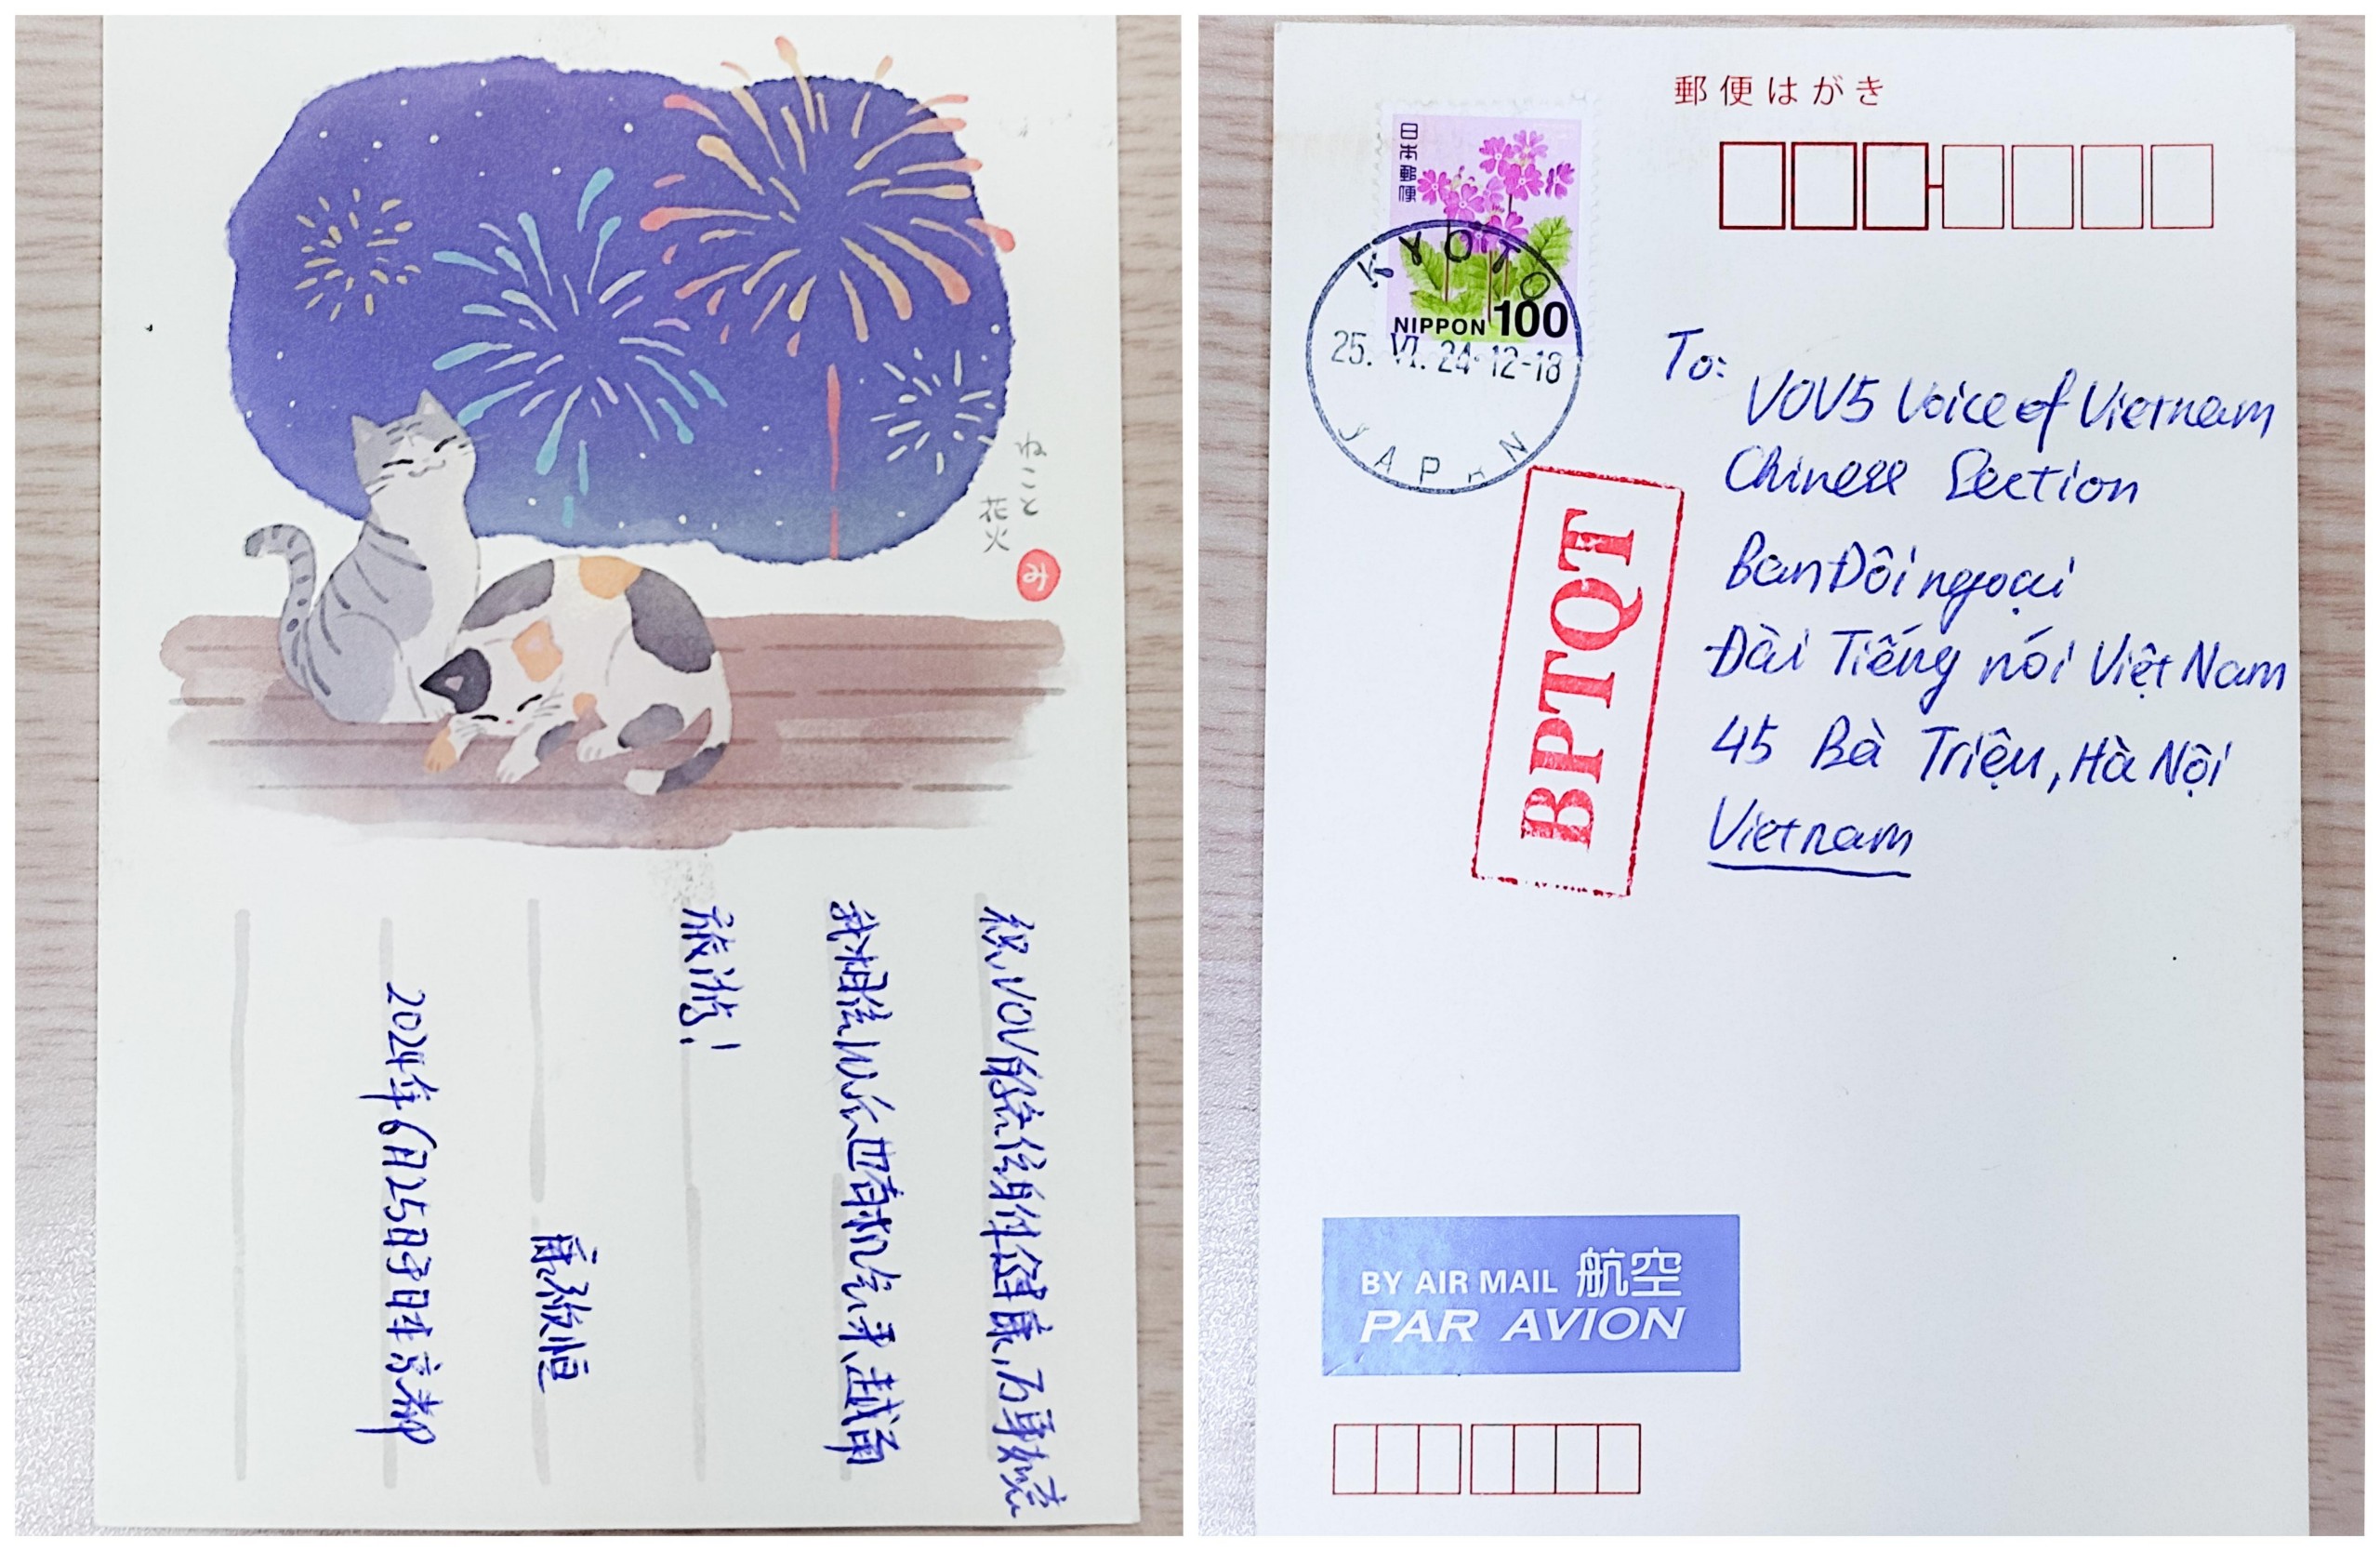 ねこと
花火
祝VOV的各位身体健康,万事如意
我相信以后还有机会来越南
旅游!
2024年6月25日于日本京都
郵便はがき
日本郵便
NIPPON 100
KYOTO
25. VI. 24 12-18
JAPAN
To:
VOV5 Voice of Vietnam
Chinese Section
Ban Đối ngoại
Đài Tiếng nói Việt Nam
45 Bà Triệu, Hà Nội
Vietnam
BPTQT
BY AIR MAIL 航空
PAR AVION